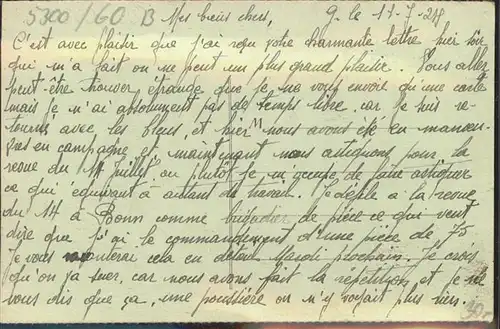 5300/60 B Mes biens chers, G. le 11-7-28
C'est avec plaisir que j'ai reçu votre charmante lettre hier soir,
qui m'a fait on ne peut un plus grand plaisir. Vous allez
peut-être trouver étrange que je ne vous envoi qu'une carte
mais je n'ai absolument pas de temps libre car je suis re-
tourné avec les bleus, et hier M nous avons été en manoeu-
vres en campagne et maintenant nous astiquons pour la
revue du 14 Juillet, ou plutôt je m'occupe de faire astiquer
ce qui équivaut à autant de travail. Je défile a la revue
du 14 à Bonn comme brigadier de pièce ce qui veut
dire que j'ai le commandement d'une pièce de 75
Je vous cela en détail Mardi prochain. Je crois
qu'on va suer, car nous avons fait la répétition et je ne
vous dis que ça, une poussière on n'y voyait plus rien.